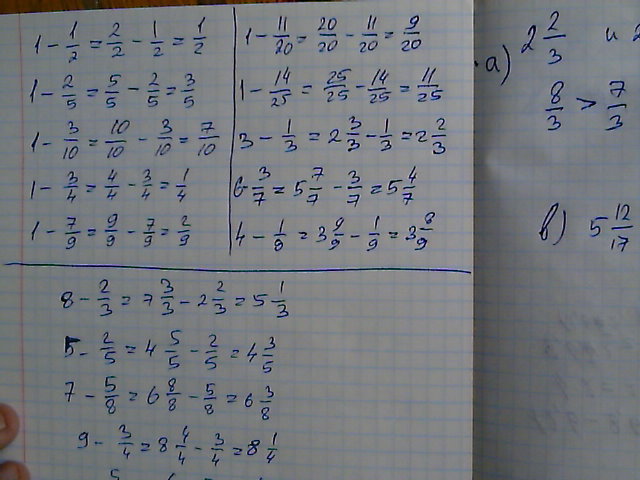 1 - 1/2 = 2/2 - 1/2 = 1/2
1 - 2/5 = 5/5 - 2/5 = 3/5
1 - 3/10 = 10/10 - 3/10 = 7/10
1 - 3/4 = 4/4 - 3/4 = 1/4
1 - 7/9 = 9/9 - 7/9 = 2/9
1 - 11/20 = 20/20 - 11/20 = 9/20
1 - 14/25 = 25/25 - 14/25 = 11/25
3 - 1/3 = 2 3/3 - 1/3 = 2 2/3
6 - 3/7 = 5 7/7 - 3/7 = 5 4/7
4 - 1/9 = 3 9/9 - 1/9 = 3 8/9
8 - 2/3 = 7 3/3 - 2 2/3 = 5 1/3
5 - 2/5 = 4 5/5 - 2/5 = 4 3/5
7 - 5/8 = 6 8/8 - 5/8 = 6 3/8
9 - 3/4 = 8 4/4 - 3/4 = 8 1/4
а) 2 2/3 и 2
8/3 > 7/3
в) 5 12/17